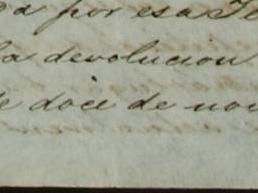 ga por esa Te
la devolucion
de doce de nov